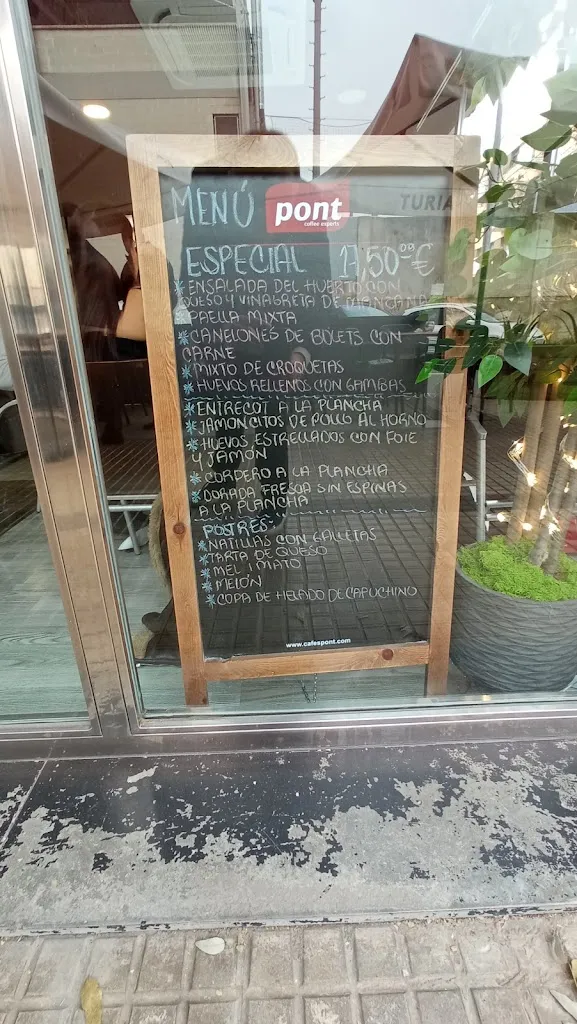 MENÚ
pont
coffee experts
TURIA
ESPECIAL 17,50€
* ENSALADA DEL HUERTO CON
QUESO Y VINAGRETA DE MANZANA
* PAELLA MIXTA
* CANELONES DE BOLETS CON
CARNE
* MIXTO DE CROQUETAS
* HUEVOS RELLENOS CON GAMBAS
* ENTRECOT A LA PLANCHA
* JAMONCITOS DE POLLO AL HORNO
* HUEVOS ESTRELLADOS CON FOIE
Y JAMÓN
* CORDERO A LA PLANCHA
* DORADA FRESCA SIN ESPINAS
A LA PLANCHA
POSTRES:
* NATILLAS CON GALLETAS
* TARTA DE QUESO
* MEL I MATO
* MELÓN
* COPA DE HELADO DE CAPUCHINO
www.cafespont.com